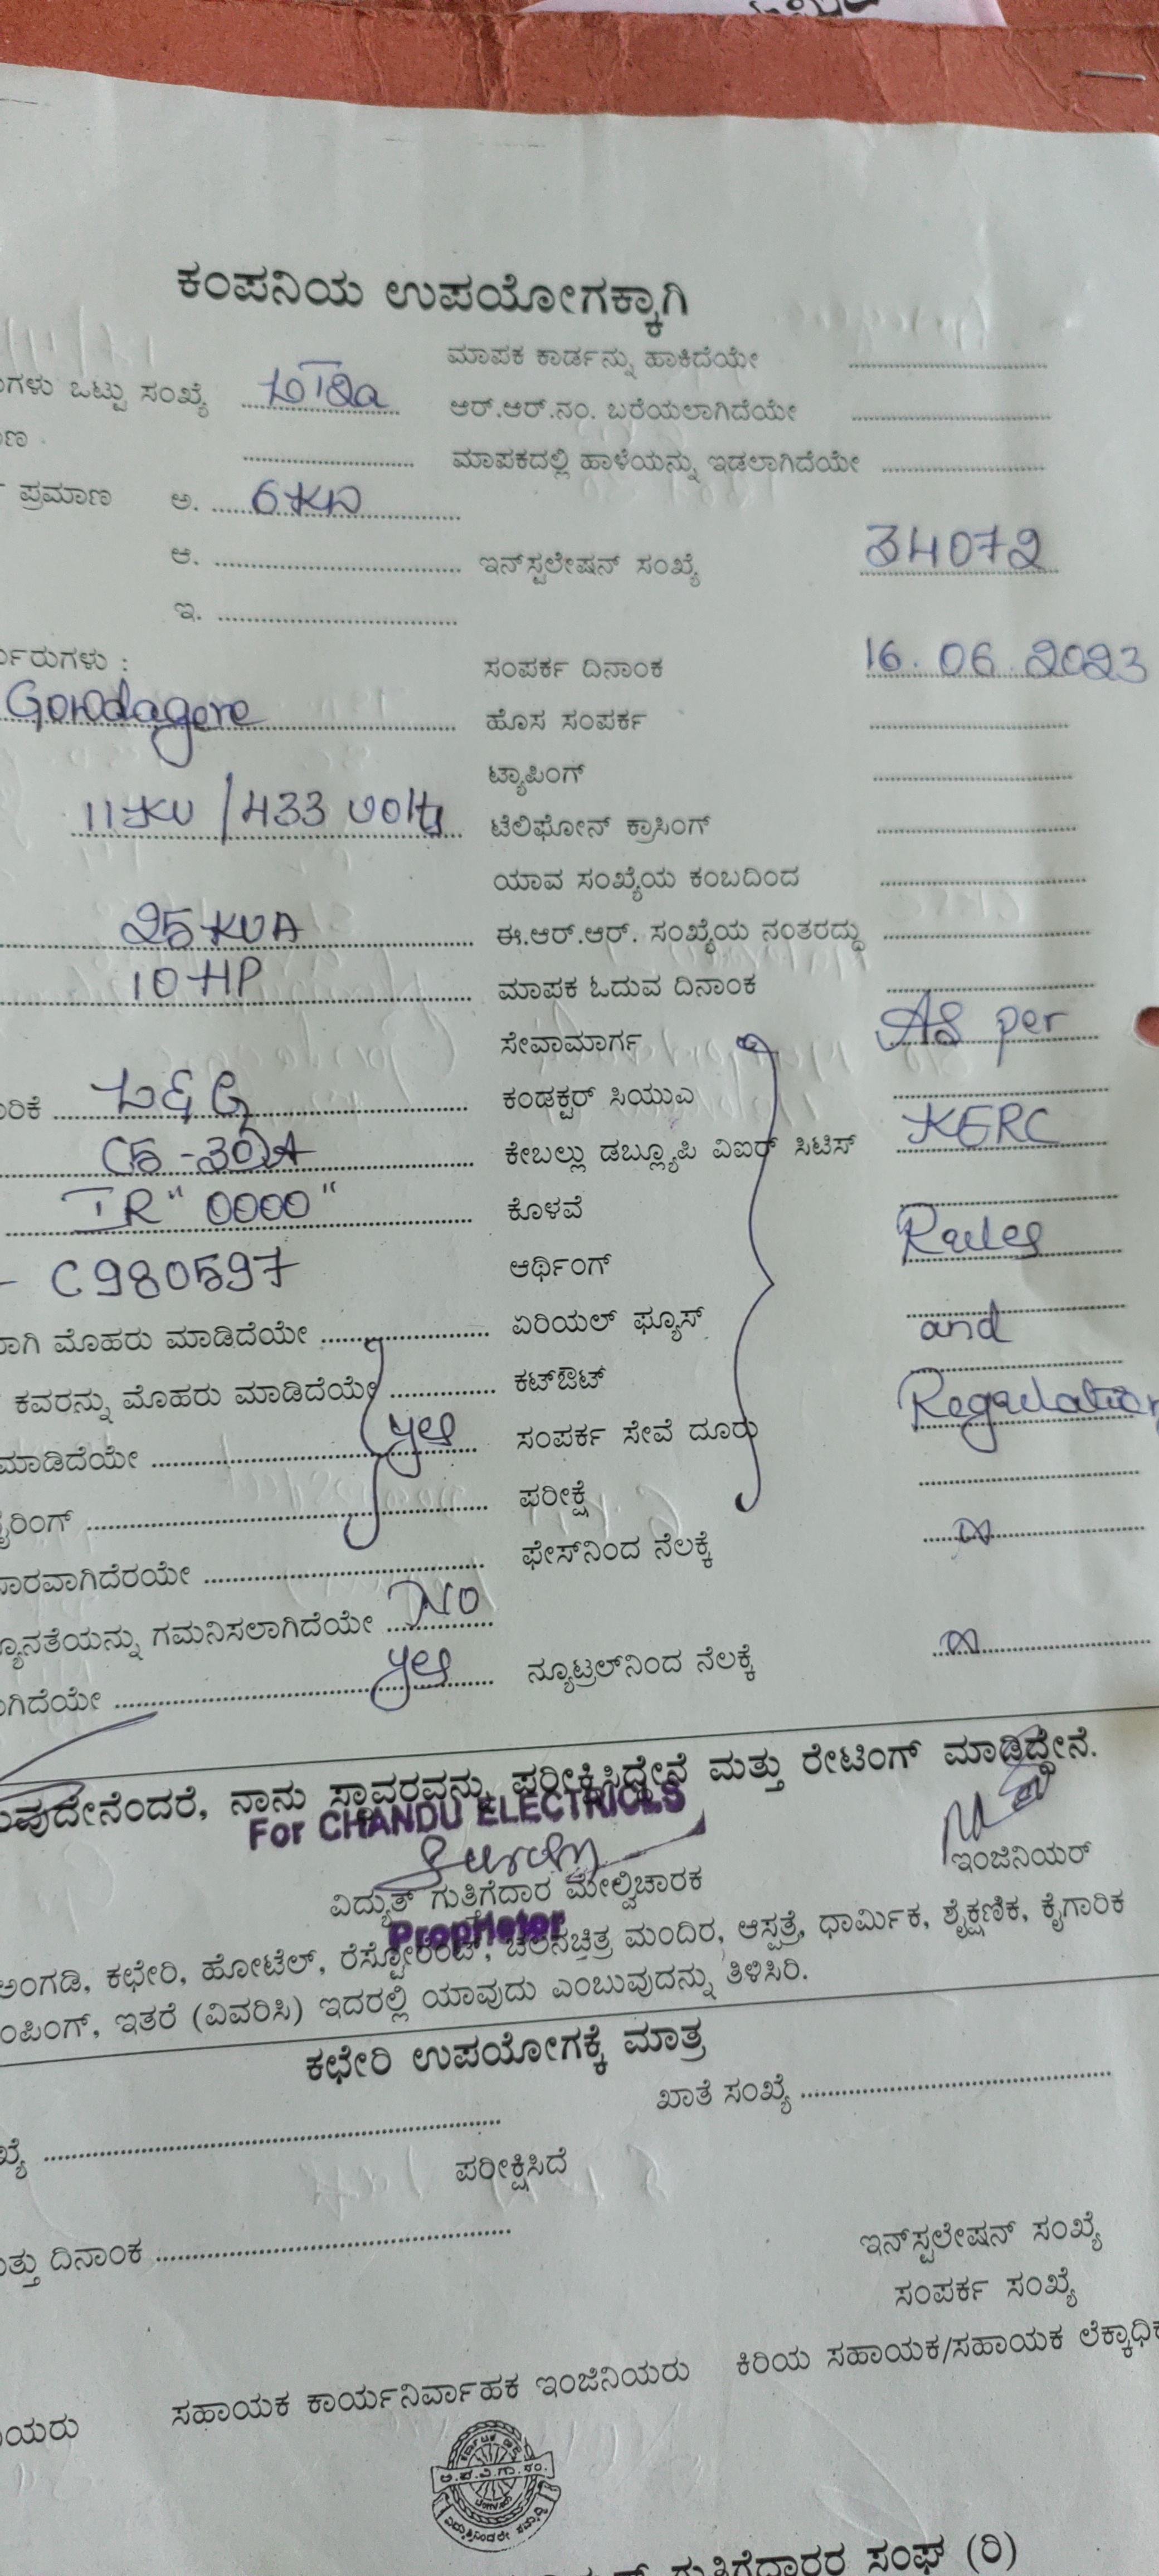 ಕಂಪನಿಯ ಉಪಯೋಗಕ್ಕಾಗಿ
ಮಾಪಕ ಕಾರ್ಡನ್ನು ಹಾಕಿದೆಯೇ
ಗಳು ಒಟ್ಟು ಸಂಖ್ಯೆ
ಆರ್.ಆರ್.ನಂ. ಬರೆಯಲಾಗಿದೆಯೇ
ಮಾಪಕದಲ್ಲಿ ಹಾಳೆಯನ್ನು ಇಡಲಾಗಿದೆಯೇ
ಪ್ರಮಾಣ ಅ. 6KW
ಆ. ಇನ್‌ಸ್ಟಲೇಷನ್ ಸಂಖ್ಯೆ 34072
ಇ.
ರುಗಳು : ಸಂಪರ್ಕ ದಿನಾಂಕ 16.06.2023
Gondagere ಹೊಸ ಸಂಪರ್ಕ
ಟ್ಯಾಪಿಂಗ್
11KV/433 volts ಟೆಲಿಫೋನ್ ಕ್ರಾಸಿಂಗ್
ಯಾವ ಸಂಖ್ಯೆಯ ಕಂಬದಿಂದ
25KVA ಈ.ಆರ್.ಆರ್. ಸಂಖ್ಯೆಯ ನಂತರದ್ದು
10HP ಮಾಪಕ ಓದುವ ದಿನಾಂಕ
ಸೇವಾಮಾರ್ಗ As per
ರಿಕೆ L&G ಕಂಡಕ್ಟರ್ ಸಿಯುಎ
C5-30A ಕೇಬಲ್ಲು ಡಬ್ಲ್ಯೂಪಿ ವಿಐರ್ ಸಿಟಿಸ್ KERC
IR "0000" ಕೊಳವೆ
Rules
- C980597 ಆರ್ಥಿಂಗ್
ಾಗಿ ಮೊಹರು ಮಾಡಿದೆಯೇ ಏರಿಯಲ್ ಫ್ಯೂಸ್ and
ಕವರನ್ನು ಮೊಹರು ಮಾಡಿದೆಯೇ ಕಟ್‌ಔಟ್
ಮಾಡಿದೆಯೇ yes ಸಂಪರ್ಕ ಸೇವೆ ದೂರು Regulation
ರಿಂಗ್ ಪರೀಕ್ಷೆ
ಾರವಾಗಿದೆರಯೇ ಫೇಸ್‌ನಿಂದ ನೆಲಕ್ಕೆ ∞
ನ್ಯೂನತೆಯನ್ನು ಗಮನಿಸಲಾಗಿದೆಯೇ No
ಗಿದೆಯೇ yes ನ್ಯೂಟ್ರಲ್‌ನಿಂದ ನೆಲಕ್ಕೆ ∞
ುವುದೇನೆಂದರೆ, ನಾನು ಸ್ಥಾವರವನ್ನು ಪರೀಕ್ಷಿಸಿದ್ದೇನೆ ಮತ್ತು ರೇಟಿಂಗ್ ಮಾಡಿದ್ದೇನೆ.
For CHANDU ELECTRICLS
ಇಂಜಿನಿಯರ್
ವಿದ್ಯುತ್ ಗುತಿಗೆದಾರ ಮೇಲ್ವಿಚಾರಕ
Proprietor
ಅಂಗಡಿ, ಕಛೇರಿ, ಹೋಟೆಲ್, ರೆಸ್ಟೋರೆಂಟ್, ಚಲನಚಿತ್ರ ಮಂದಿರ, ಆಸ್ಪತ್ರೆ, ಧಾರ್ಮಿಕ, ಶೈಕ್ಷಣಿಕ, ಕೈಗಾರಿಕ
ಂಪಿಂಗ್, ಇತರೆ (ವಿವರಿಸಿ) ಇದರಲ್ಲಿ ಯಾವುದು ಎಂಬುವುದನ್ನು ತಿಳಿಸಿರಿ.
ಕಛೇರಿ ಉಪಯೋಗಕ್ಕೆ ಮಾತ್ರ
ಖಾತೆ ಸಂಖ್ಯೆ
ಪರೀಕ್ಷಿಸಿದೆ
ಮತ್ತು ದಿನಾಂಕ
ಇನ್‌ಸ್ಟಲೇಷನ್ ಸಂಖ್ಯೆ
ಸಂಪರ್ಕ ಸಂಖ್ಯೆ
ಯರು ಸಹಾಯಕ ಕಾರ್ಯನಿರ್ವಾಹಕ ಇಂಜಿನಿಯರು ಕಿರಿಯ ಸಹಾಯಕ/ಸಹಾಯಕ ಲೆಕ್ಕಾಧಿಕ
ಗುತ್ತಿಗೆದಾರರ ಸಂಘ (ರಿ)